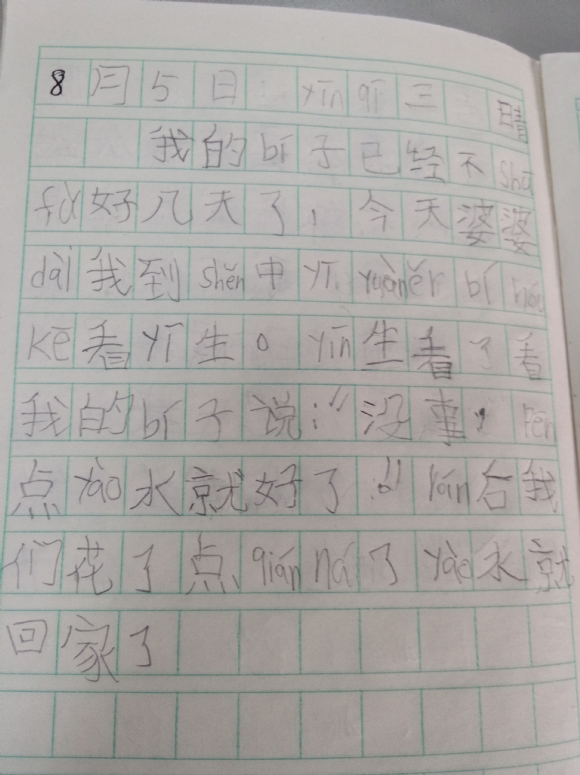 8月5日 yīn qī 三 晴
我的bí子已经不shū
fú好几天了，今天婆婆
dài我到shěn中yī yuàn ěr bí hóu
kē看yī生。yīn生看了看
我的bí子说：“没事，pēn
点yào水就好了。”rán后我
们花了点qián ná了yào水就
回家了